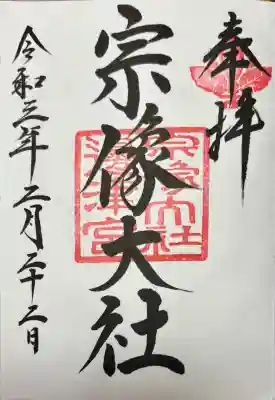 奉拝
宗像大社
令和三年二月二十二日
宗像大社
邊津宮